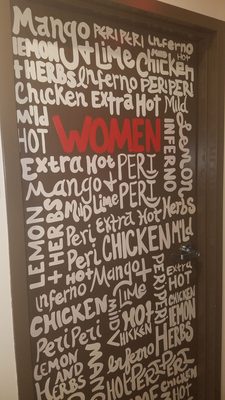 Mango PERi PERi inferno
LEMON + Lime MiLD Hot
+ HERBS Chicken
inferno PERi PERi
Chicken Extra Hot Mild
Mild
HOT WOMEN
INFERNO
LEMON
Extra Hot PERI
Mango + PERI
LEMON + HERBS
Mild Lime
Peri Extra Hot Herbs
Peri CHICKEN Mild
+ Hot Mango +
PERi PERi
Extra Hot
inferno Lime
CHICKEN MiLD CHICKEN
CHICKEN
LEMON
Peri Peri HERBS
LEMON AND Herbs
MANGO
Inferno
HOT PERi PERi
CHICKEN
HOT